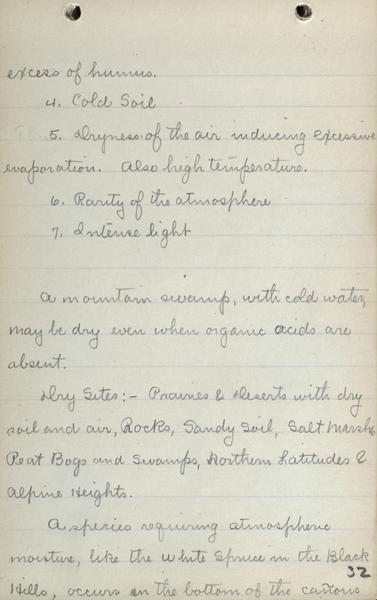 excess of humus.
4. Cold Soil
5. Dryness of the air inducing excessive
evaporation. Also high temperature.
6. Rarity of the atmosphere
7. Intense light
A mountain swamp, with cold water,
may be dry even when organic acids are
absent.
Dry Sites:- Prairies & Deserts with dry
soil and air, Rocks, Sandy Soil, Salt Marsh,
Peat Bogs and Swamps, Northern Latitudes &
Alpine Heights.
A species requiring atmospheric
moisture, like the White Spruce in the Black
Hills, occurs in the bottom of the cañons
32